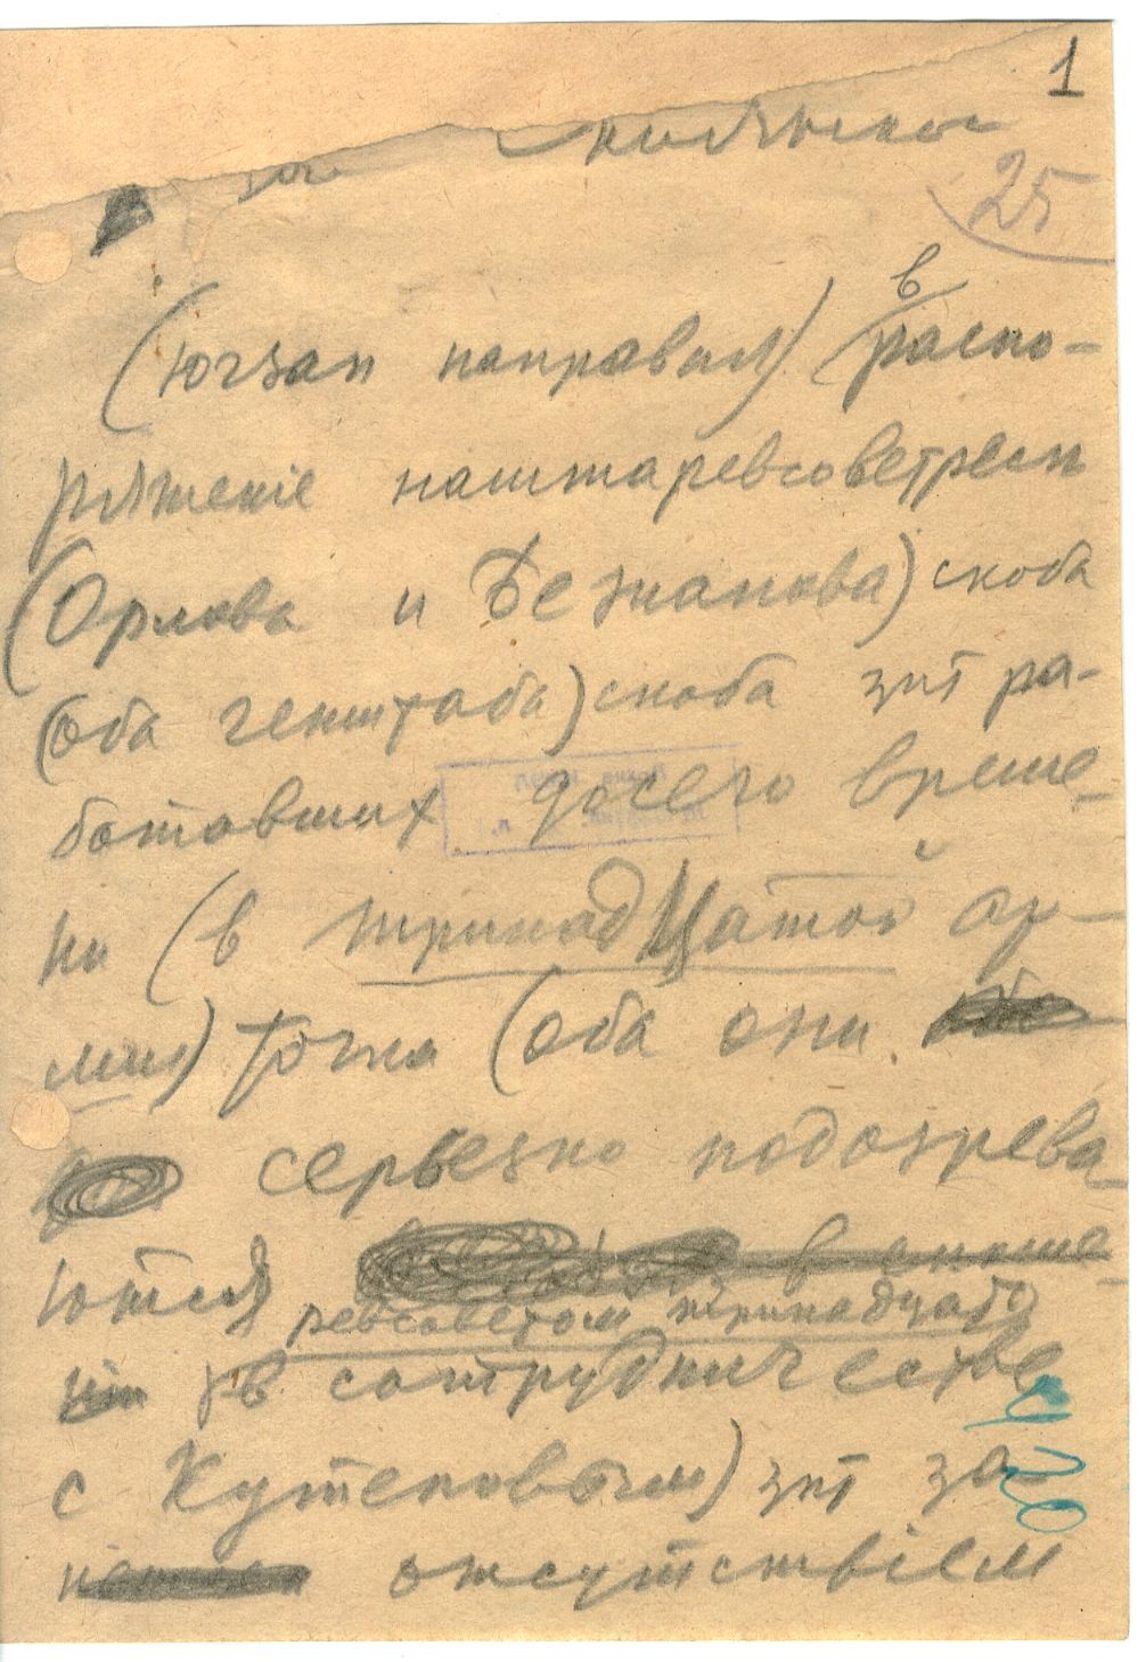 1
25
в
(югзап направил) распо-
ряжение наштаревсоветреси
(Орлова и Бежанова) скоба
(оба генштаба) скоба зпт ра-
ботавших досего време-
ни (в тринадцатой ар-
мии) точка (оба они
серьезно подозрева-
ются
ревсоветом тринадцато
в сотрудничестве
с Кутеповым) зпт за
отсутствiем